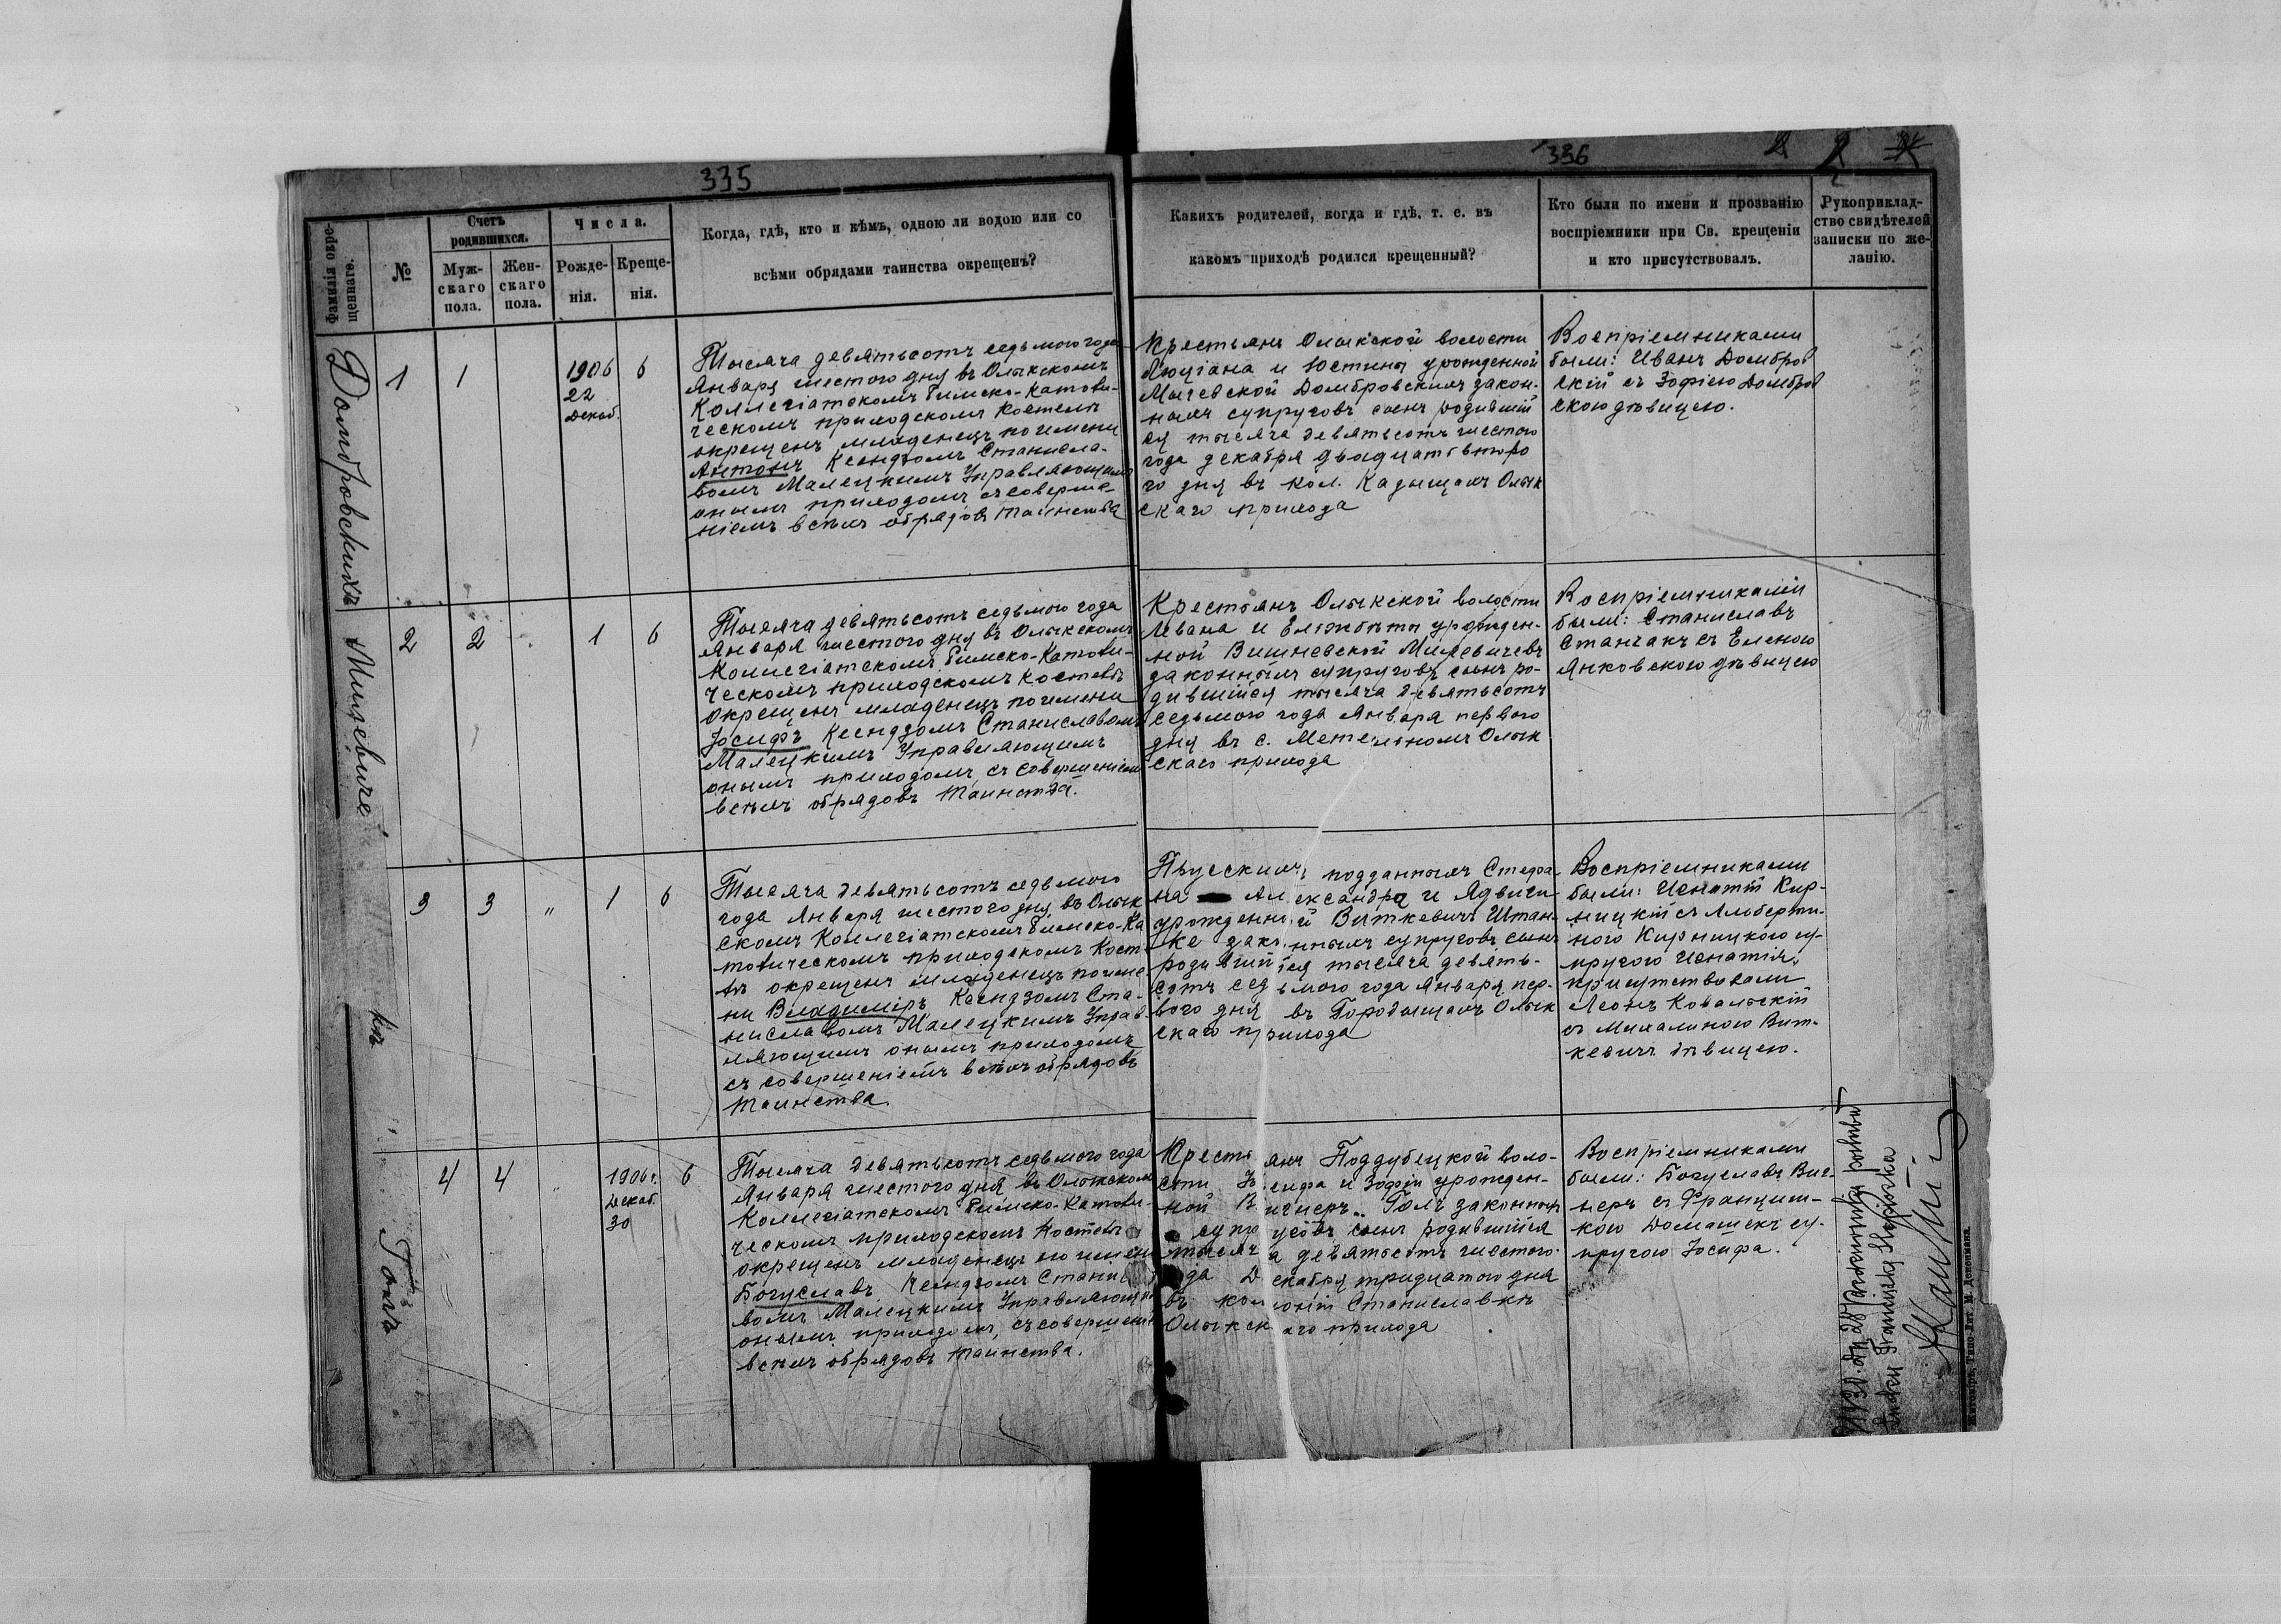 335
Фамилія окре-
щеннаго.
№
Счетъ
родившихся.
Муж-
скаго
пола.
Жен-
скаго
пола.
Числа.
Рожде-
нія.
Креще-
нія.
Когда, гдѣ, кто и кѣмъ, одною ли водою или со
всѣми обрядами таинства окрещенъ?
336
Какихъ родителей, когда и гдѣ, т. е. въ
какомъ приходѣ родился крещенный?
Кто были по имени и прозванію
воспріемники при Св. крещеніи
и кто присутствовалъ.
Рукоприклад-
ство свидѣтелей
записки по же-
ланію.
Домбровскихъ
1
1
1906
22
Декаб.
6
Тысяча девятьсотъ седьмого года
Января шестого дня въ Олыкскомъ
Коллегіатскомъ Римско-Католи-
ческомъ приходскомъ Костелѣ
окрещенъ младенецъ по имени
Антонъ Ксендзомъ Станисла-
вомъ Малецкимъ Управляющимъ
онымъ приходомъ съ соверше-
ніемъ всѣхъ обрядовъ таинства
Крестьянъ Олыкской волости
Люціана и Юстины урожденной
Мычевской Домбровскихъ закон-
ныхъ супруговъ сынъ родившій
ся тысяча девятьсотъ шестого
года декабря двадцать второ
го дня въ кол. Кадыщахъ Олык
скаго прихода
Воспріемниками
были: Иванъ Домбров
скій съ Зофіею Домбров
скою дѣвицею.
Мицевиче
2
2
1
6
Тысяча девятьсотъ седьмого года
Января шестого дня въ Олыкскомъ
Коллегіатскомъ Римско-Католи-
ческомъ приходскомъ Костелѣ
окрещенъ младенецъ по имени
Іосифъ Ксендзомъ Станиславомъ
Малецкимъ Управляющимъ
онымъ приходомъ, съ совершеніемъ
всѣхъ обрядовъ Таинства.
Крестьянъ Олыкской волости
и Елжбѣты урожден-
ной Вишневской Мицевичевъ
законныхъ супруговъ сынъ ро-
дившійся тысяча девятьсотъ
седьмого года Января первого
дня въ с. Метельномъ Олык
скаго прихода
Воспріемниками
были: Станиславъ
Станчакъ съ Еленою
Янковскою дѣвицею
3
3
"
1
6
Тысяча девятьсотъ седьмого
года Января шестого дня въ Олык
скомъ Коллегіатскомъ Римско-Ка
толическомъ приходскомъ Косте
лѣ окрещенъ младенецъ по име
ни Владиміръ Ксендзомъ Ста-
ниславомъ Малецкимъ Управ-
ляющимъ онымъ приходомъ
съ совершеніемъ всѣхъ обрядовъ
Таинства.
Прусскихъ подданныхъ Стефа
на Александра и Ядвиги
урожденной Виткевичъ Штан-
ке законныхъ супруговъ сынъ
родившійся тысяча девять-
сотъ седьмого года Января пер-
вого дня въ Городыщахъ Олык
скаго прихода
Воспріемниками
были: Игнатій Кир-
ницкій съ Альберти-
ною Кирницкою су-
пругою Игнатія,
присутствовали
Леонъ Ковальскій
съ Михалиною Вит-
кевичъ дѣвицею.
Голъ
4
4
"
1906 г.
Декаб.
30
6
Тысяча девятьсотъ седьмого года
Января шестого дня въ Олыкскомъ
Коллегіатскомъ Римско-Католи-
ческомъ приходскомъ Костелѣ
окрещенъ младенецъ по имени
Богуславъ Ксендзомъ Станисла
вомъ Малецкимъ Управляющимъ
онымъ приходомъ, съ совершеніемъ
всѣхъ обрядовъ Таинства.
Крестьянъ Поддубецкой воло-
сти Іосифа и Зофіи урожден-
ной Вигнеръ Голъ законныхъ
супруговъ сынъ родившійся
тысяча девятьсотъ шестого
года Декабря тридцатого дня
въ колоніи Станиславкѣ
Олыкскаго прихода
Воспріемниками
были: Богуславъ Виг-
неръ съ Францишк-
кою Домашекъ су-
пругою Іосифа.
Житомiръ, Типо-Лит. М. Дененмана.